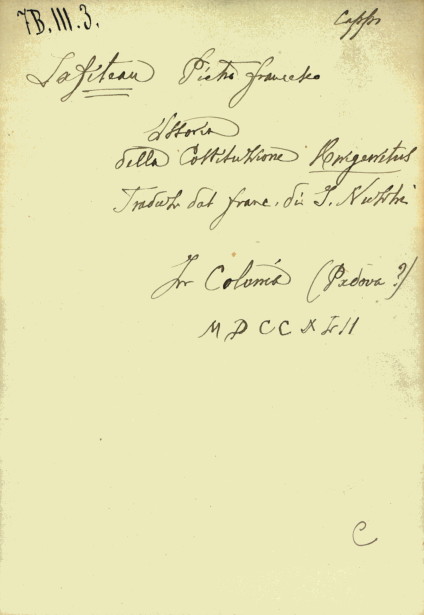 7B.III.3.
Lafiteau Pietro Francesco
Istoria
della Costituzione Unigenitus
Tradotta dal franc. di I. Nutbhi
In Colonia (Padova?)
MDCCXLII
C